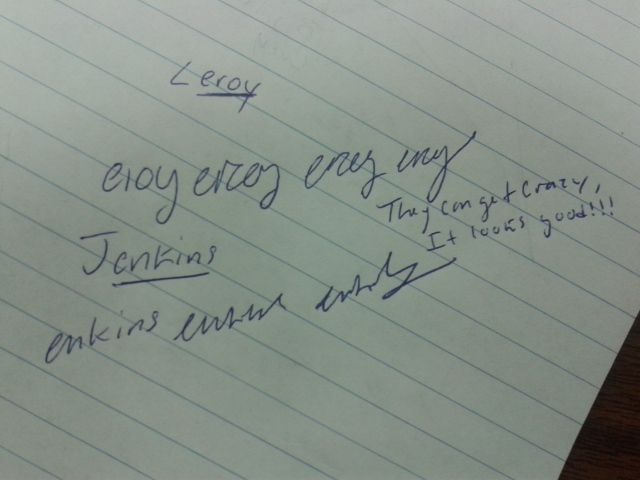 Leroy
eroy eroy eroy eroy
They can get crazy,
It looks good!!!
Jenkins
enkins